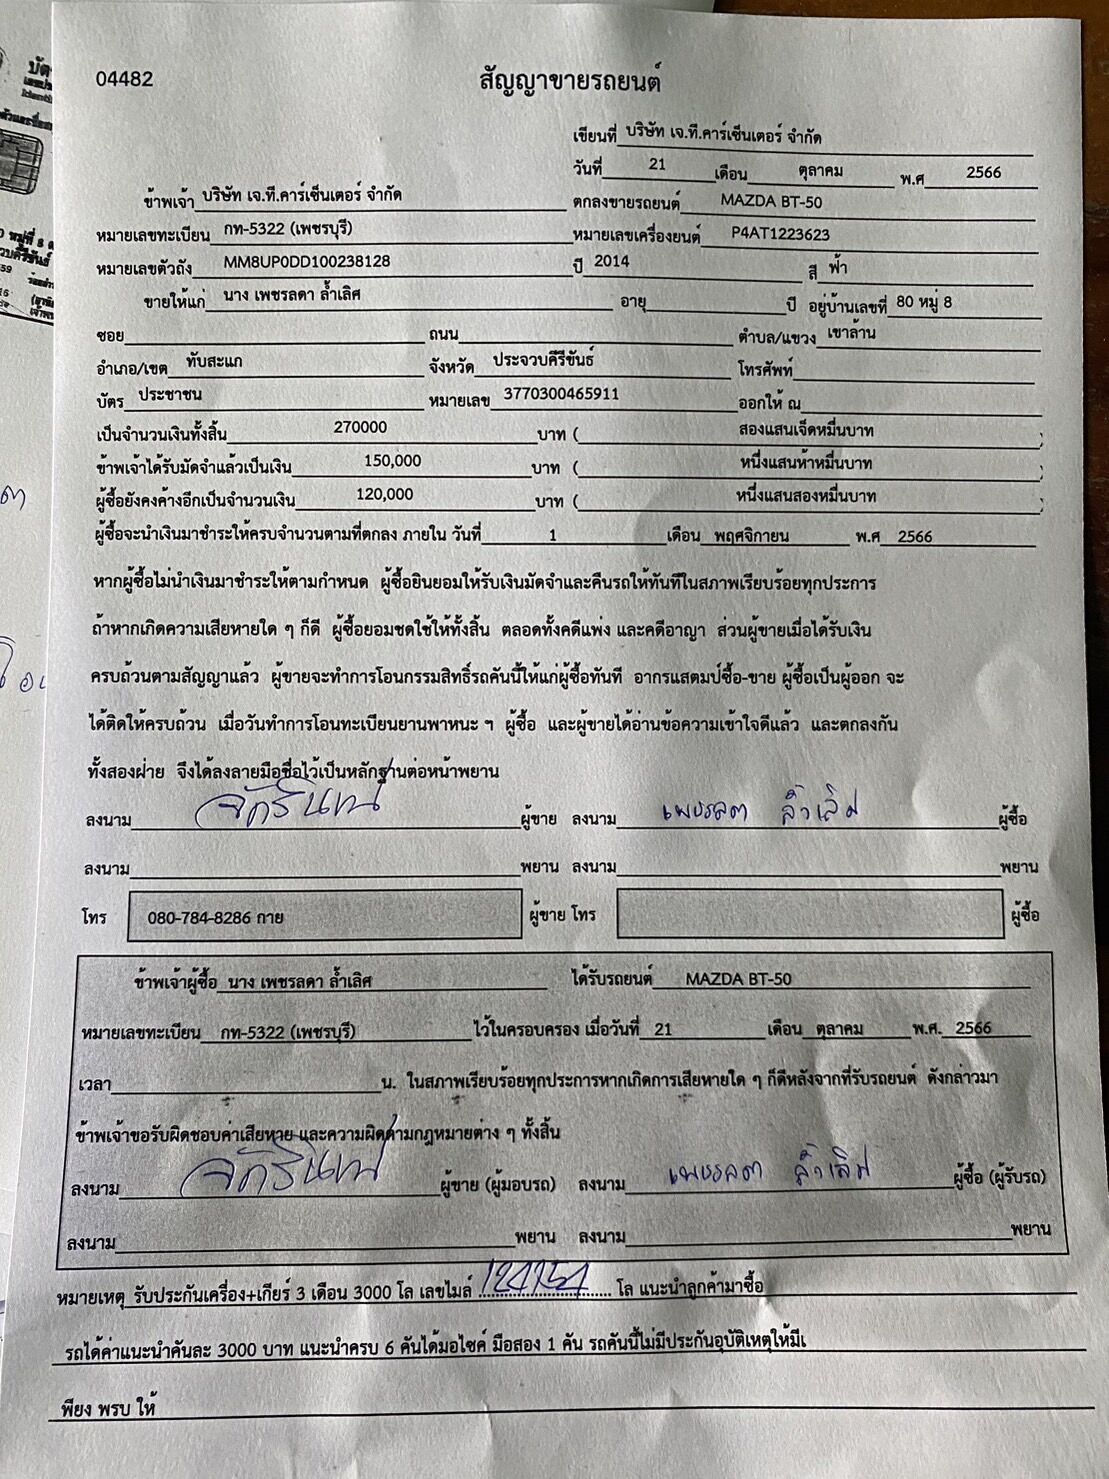 04482
สัญญาขายรถยนต์
เขียนที่ บริษัท เจ.ที.คาร์เซ็นเตอร์ จำกัด
วันที่ 21 เดือน ตุลาคม พ.ศ 2566
ข้าพเจ้า บริษัท เจ.ที.คาร์เซ็นเตอร์ จำกัด ตกลงขายรถยนต์ MAZDA BT-50
หมายเลขทะเบียน กท-5322 (เพชรบุรี) หมายเลขเครื่องยนต์ P4AT1223623
หมายเลขตัวถัง MM8UP0DD100238128 ปี 2014 สี ฟ้า
ขายให้แก่ นาง เพชรลดา ล้ำเลิศ อายุ ปี อยู่บ้านเลขที่ 80 หมู่ 8
ซอย ถนน ตำบล/แขวง เขาล้าน
อำเภอ/เขต ทับสะแก จังหวัด ประจวบคีรีขันธ์ โทรศัพท์
บัตร ประชาชน หมายเลข 3770300465911 ออกให้ ณ
เป็นจำนวนเงินทั้งสิ้น 270000 บาท ( สองแสนเจ็ดหมื่นบาท )
ข้าพเจ้าได้รับมัดจำแล้วเป็นเงิน 150,000 บาท ( หนึ่งแสนห้าหมื่นบาท )
ผู้ซื้อยังคงค้างอีกเป็นจำนวนเงิน 120,000 บาท ( หนึ่งแสนสองหมื่นบาท )
ผู้ซื้อจะนำเงินมาชำระให้ครบจำนวนตามที่ตกลง ภายใน วันที่ 1 เดือน พฤศจิกายน พ.ศ 2566
หากผู้ซื้อไม่นำเงินมาชำระให้ตามกำหนด ผู้ซื้อยินยอมให้รับเงินมัดจำและคืนรถให้ทันทีในสภาพเรียบร้อยทุกประการ
ถ้าหากเกิดความเสียหายใด ๆ ก็ดี ผู้ซื้อยอมชดใช้ให้ทั้งสิ้น ตลอดทั้งคดีแพ่ง และคดีอาญา ส่วนผู้ขายเมื่อได้รับเงิน
ครบถ้วนตามสัญญาแล้ว ผู้ขายจะทำการโอนกรรมสิทธิ์รถคันนี้ให้แก่ผู้ซื้อทันที อากรแสตมป์ซื้อ-ขาย ผู้ซื้อเป็นผู้ออก จะ
ได้ติดให้ครบถ้วน เมื่อวันทำการโอนทะเบียนยานพาหนะ ฯ ผู้ซื้อ และผู้ขายได้อ่านข้อความเข้าใจดีแล้ว และตกลงกัน
ทั้งสองฝ่าย จึงได้ลงลายมือชื่อไว้เป็นหลักฐานต่อหน้าพยาน
ลงนาม จักรินทร์ ผู้ขาย ลงนาม เพชรลดา ล้ำเลิศ ผู้ซื้อ
ลงนาม พยาน ลงนาม พยาน
โทร 080-784-8286 กาย ผู้ขาย โทร ผู้ซื้อ
ข้าพเจ้าผู้ซื้อ นาง เพชรลดา ล้ำเลิศ ได้รับรถยนต์ MAZDA BT-50
หมายเลขทะเบียน กท-5322 (เพชรบุรี) ไว้ในครอบครอง เมื่อวันที่ 21 เดือน ตุลาคม พ.ศ. 2566
เวลา น. ในสภาพเรียบร้อยทุกประการหากเกิดการเสียหายใด ๆ ก็ดีหลังจากที่รับรถยนต์ ดังกล่าวมา
ข้าพเจ้าขอรับผิดชอบค่าเสียหาย และความผิดตามกฎหมายต่าง ๆ ทั้งสิ้น
ลงนาม จักรินทร์ ผู้ขาย (ผู้มอบรถ) ลงนาม เพชรลดา ล้ำเลิศ ผู้ซื้อ (ผู้รับรถ)
ลงนาม พยาน ลงนาม พยาน
หมายเหตุ รับประกันเครื่อง+เกียร์ 3 เดือน 3000 โล เลขไมล์ โล แนะนำลูกค้ามาซื้อ
รถได้ค่าแนะนำคันละ 3000 บาท แนะนำครบ 6 คันได้มอไซค์ มือสอง 1 คัน รถคันนี้ไม่มีประกันอุบัติเหตุให้มีเ
พียง พรบ ให้